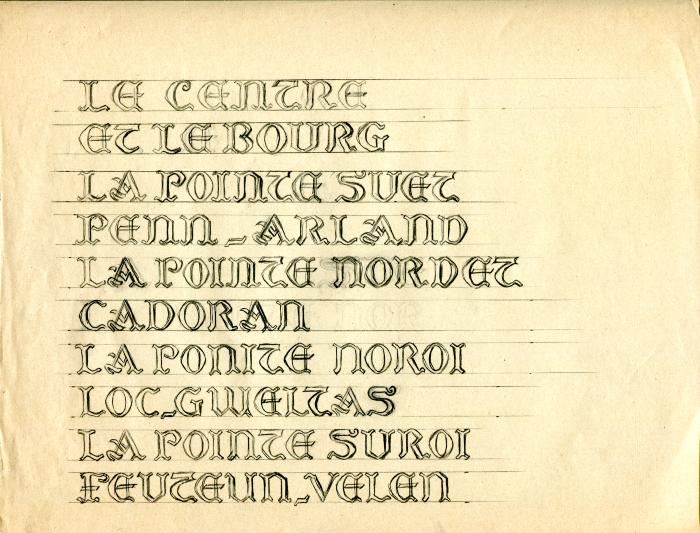 LE CENTRE
ET LE BOURG
LA POINTE SUET
PENN-ARLAND
LA POINTE NORDET
CADORAN
LA PONITE NOROI
LOC-GWELTAS
LA POINTE SUROI
FEUTEUN-VELEN